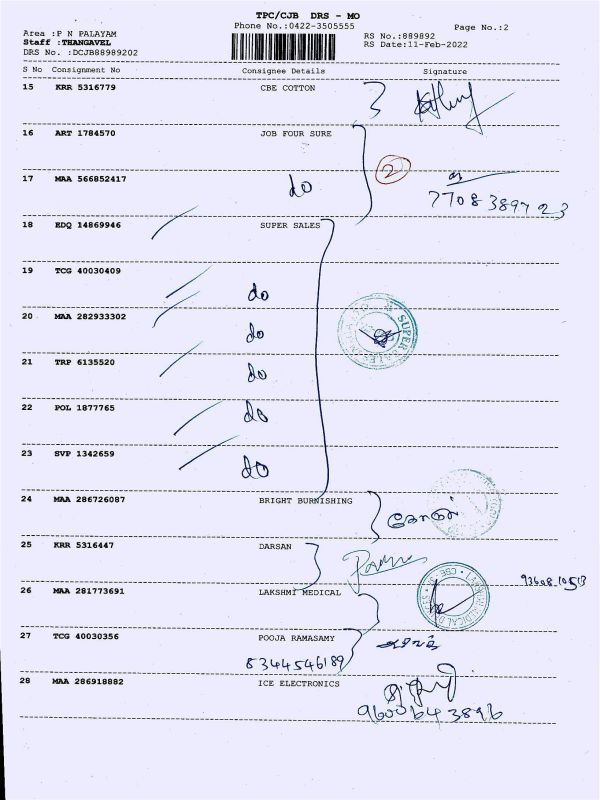 TPC/CJB DRS - MO
Phone No.:0422-3505555
Page No.:2
Area :P N PALAYAM
Staff :THANGAVEL
DRS No. :DCJB88989202
RS No.:889892
RS Date:11-Feb-2022
S No Consignment No Consignee Details Signature
15 KRR 5316779 CBE COTTON
16 ART 1784570 JOB FOUR SURE
2
17 MAA 566852417 do
7708389723
18 EDQ 14869946 SUPER SALES
19 TCG 40030409 do
20 MAA 282933302 do
SUPER SALES
21 TRP 6135520 do
22 POL 1877765 do
23 SVP 1342659 do
24 MAA 286726087 BRIGHT BURNISHING
25 KRR 5316447 DARSAN
26 MAA 281773691 LAKSHMI MEDICAL
27 TCG 40030356 POOJA RAMASAMY
8344546189
28 MAA 286918882 ICE ELECTRONICS
9600643896